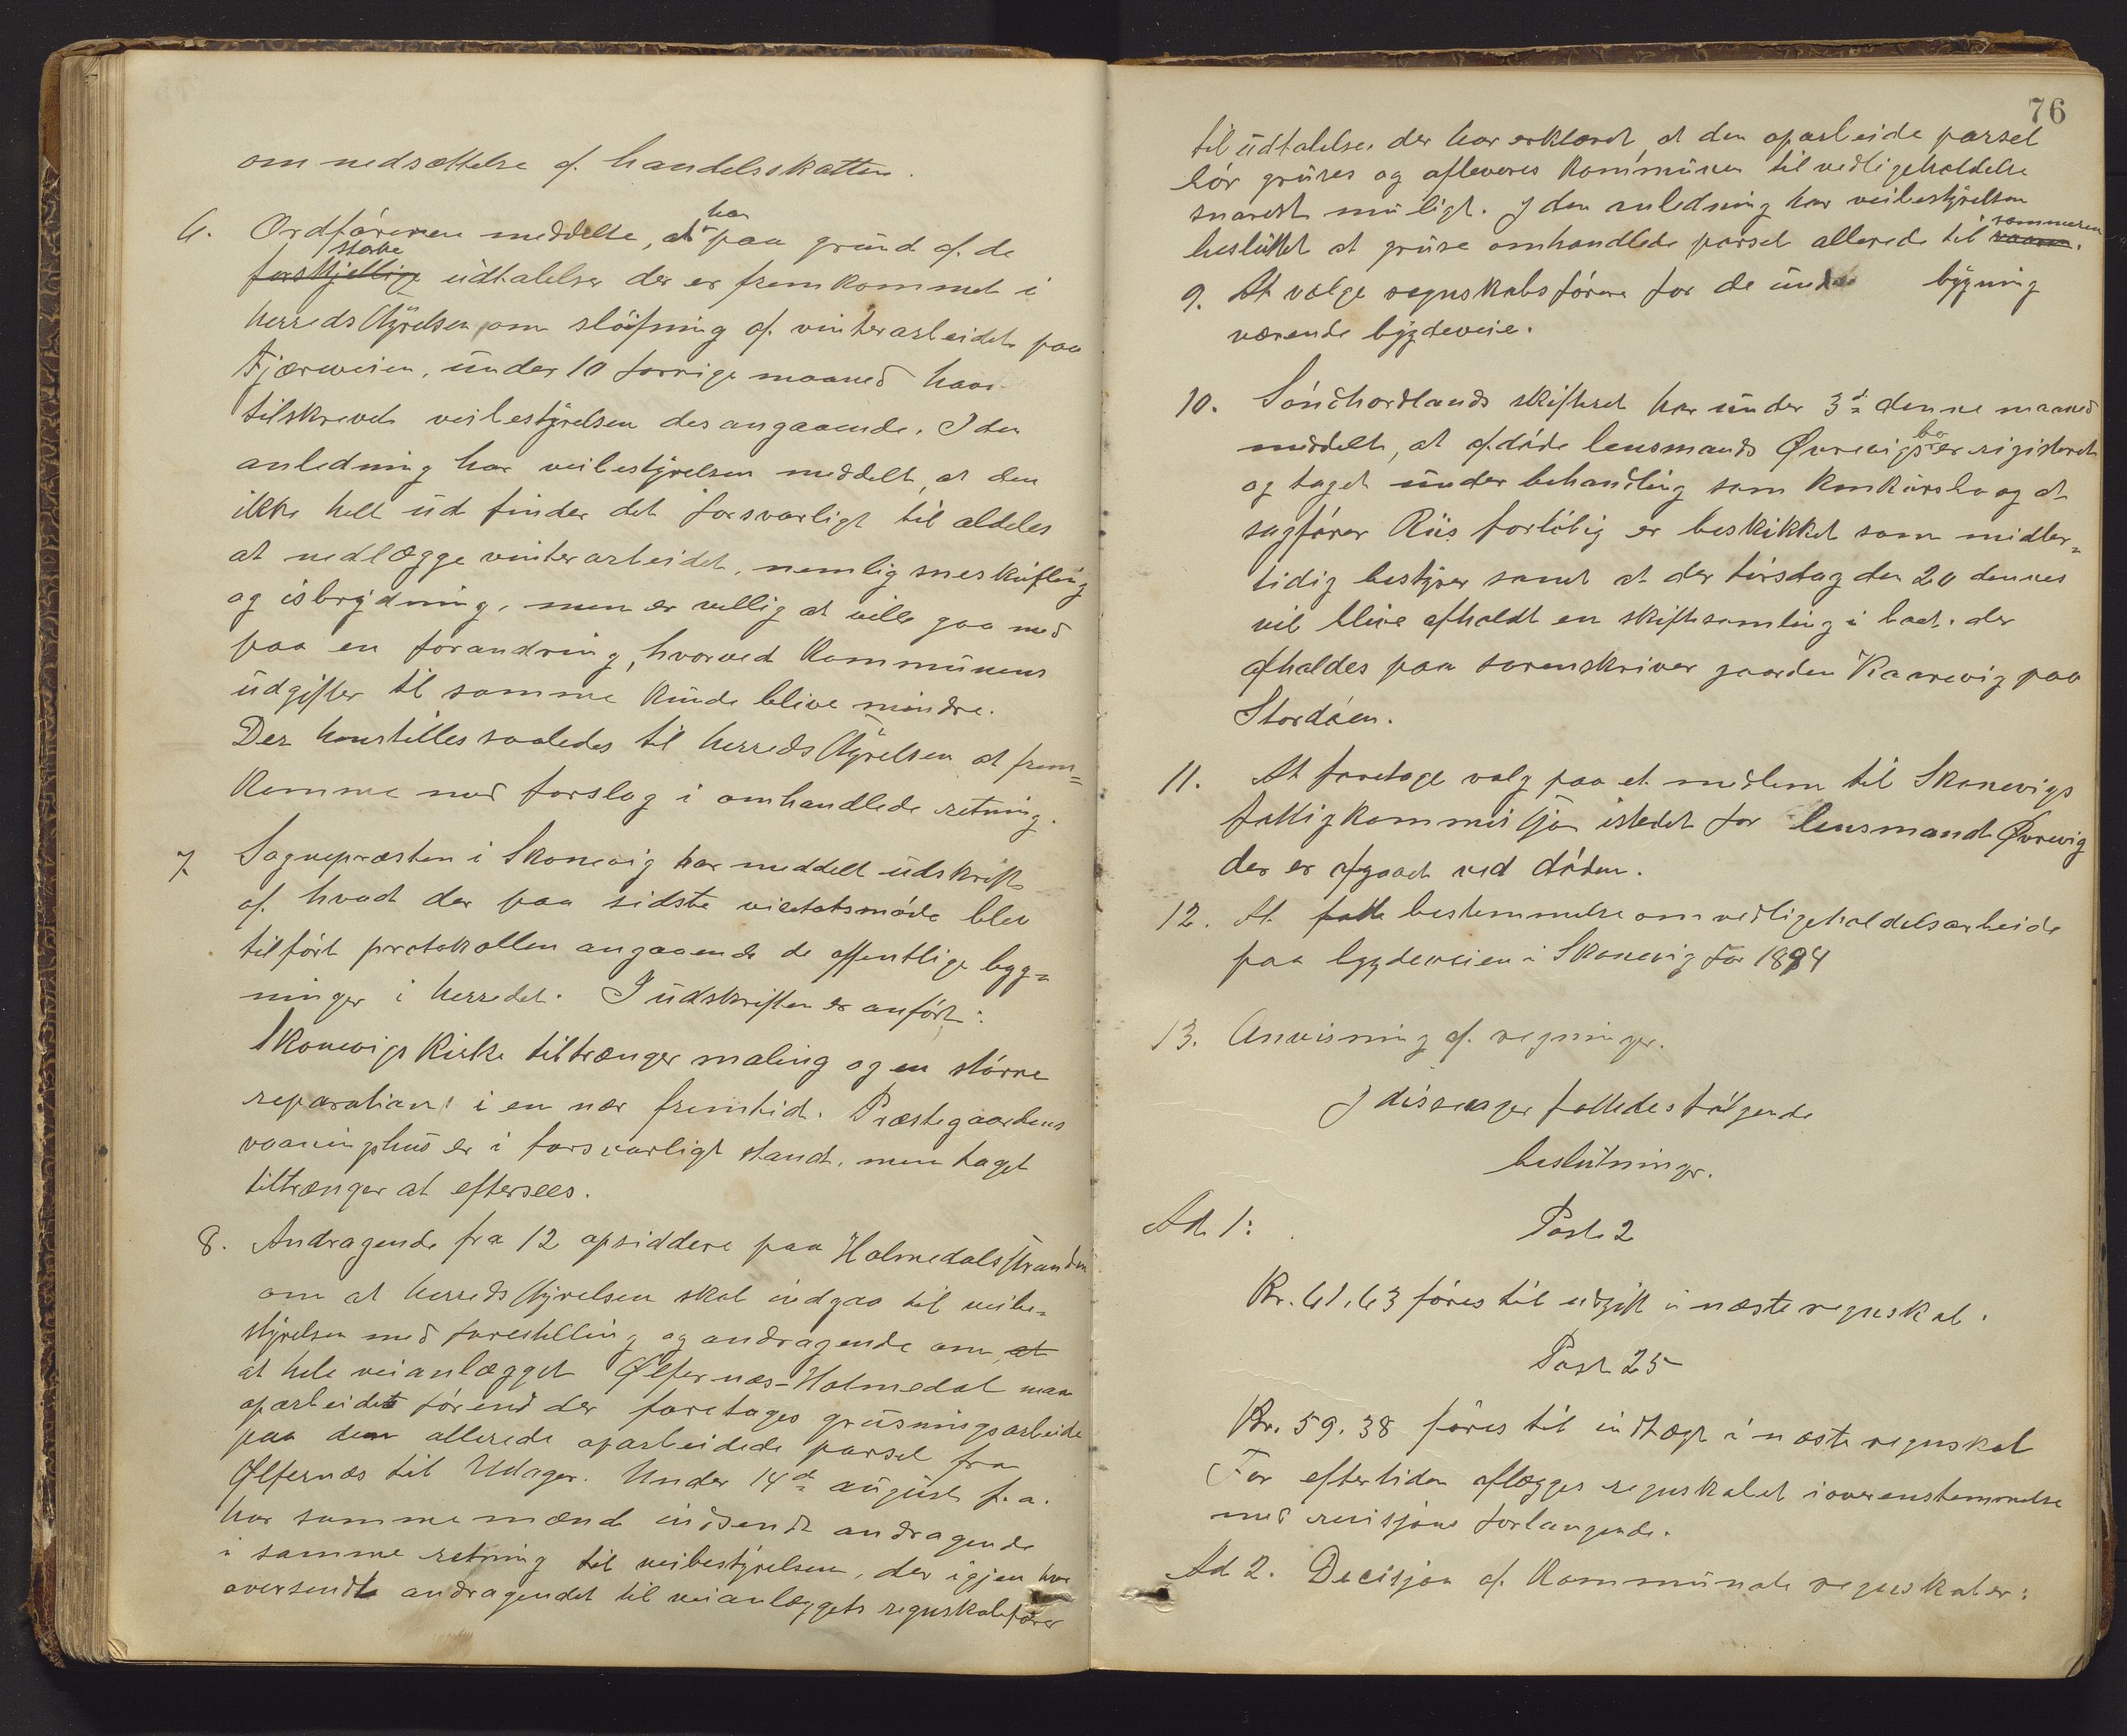 om nedsættelse af handelsskatten.
6. Ordføreren meddelte, at han paa grund af de
forskjellige stærke udtalelser der er fremkommet i
herredsstyrelsen om sløifning af vinterarbeidet paa
Fjæreveien, under 10 forrige maaned haar
tilskrevet veibestyrelsen desangaaende. I den
anledning har veibestyrelsen meddelt, at den
ikke helt ud finder det forsvarligt til aldeles
at nedlægge vinterarbeidet, nemlig sneskufling
og isbrydning, men er villig at ville gaa med
paa en forandring, hvorved Kommunens
udgifter til samme kunde blive mindre.
Der henstilles saaledes til herredsstyrelsen at frem=
komme med forslag i omhandlede retning.
7. Sognepræsten i Skonevig har meddelt udskrift
af hvad der paa sidste visitatsmøde blev
tilført protokollen angaaende de offentlige byg=
ninger i herredet. I udskriften er anført:
Skonevigs Kirke tiltrænger maling og en større
reparation i en nær fremtid. Præstegaardens
vaaningshus er i forsvarligt stand, men taget
tiltrænger at eftersees.
8. Andragende fra 12 opsiddere paa Holmedalsstranden
om at herredsstyrelsen skal indgaa til veibe=
styrelsen med forestilling og andragende om at
at hele veianlægget Ølfernæs-Holmedal maa
oparbeidets førend der foretages grusningsarbeide
paa den allerede oparbeidede parsel fra
Ølfernæs til Udager. Under 14de august f.a.
har samme mænd indsendt andragende
i samme retning til veibestyrelsen, der igjen har
oversendt andragendet til veianlæggets regnskabsfører
76
til udtalelse, der har erklæret, at den oparbeide parsel
bør gruses og afleveres Kommunen til vedligeholdelse
snarest muligt. I den anledning har veibestyrelsen
besluttet at gruse omhandlede parsel allerede til vaaren sommeren.
9. At vælge regnskabsførere for de under bygning
værende bygdeveie.
10. Søndhordlands skifteret har under 3de denne maaned
meddelt, at afdøde lensmands Øvrevigs bo er registeret
og taget under behandling som konkursbo og at
sagfører Riis forløbig er beskikket som midler=
tidig bestyrer samt at der tirsdag den 20 dennes
vil blive afholdt en skiftesamling i boet. der
afholdes paa sorenskriver gaarden Kaarevig paa
Stordøen.
11. At foretage valg paa et medlem til Skonevigs
fattigkommissjon istedet for lensmand Øvrevig
der er afgaaet ved døden.
12. At fatte bestemmelse om vedligeholdelsarbeide
paa bygdeveien i Skonevig for 1894
13. Anvisning af regninger.
I disse sager fattedes følgende
beslutninger.
Ad 1:
Post 2
Kr. 61,63 føres til udgift i næste regnskab.
Post 25
Kr. 59.38 føres til indtægt i næste regnskab
For eftertiden aflægges regnskabet i overenstemmelse
med revisjons forlangende.
Ad 2. Decisjon af Kommunale regnskaber: